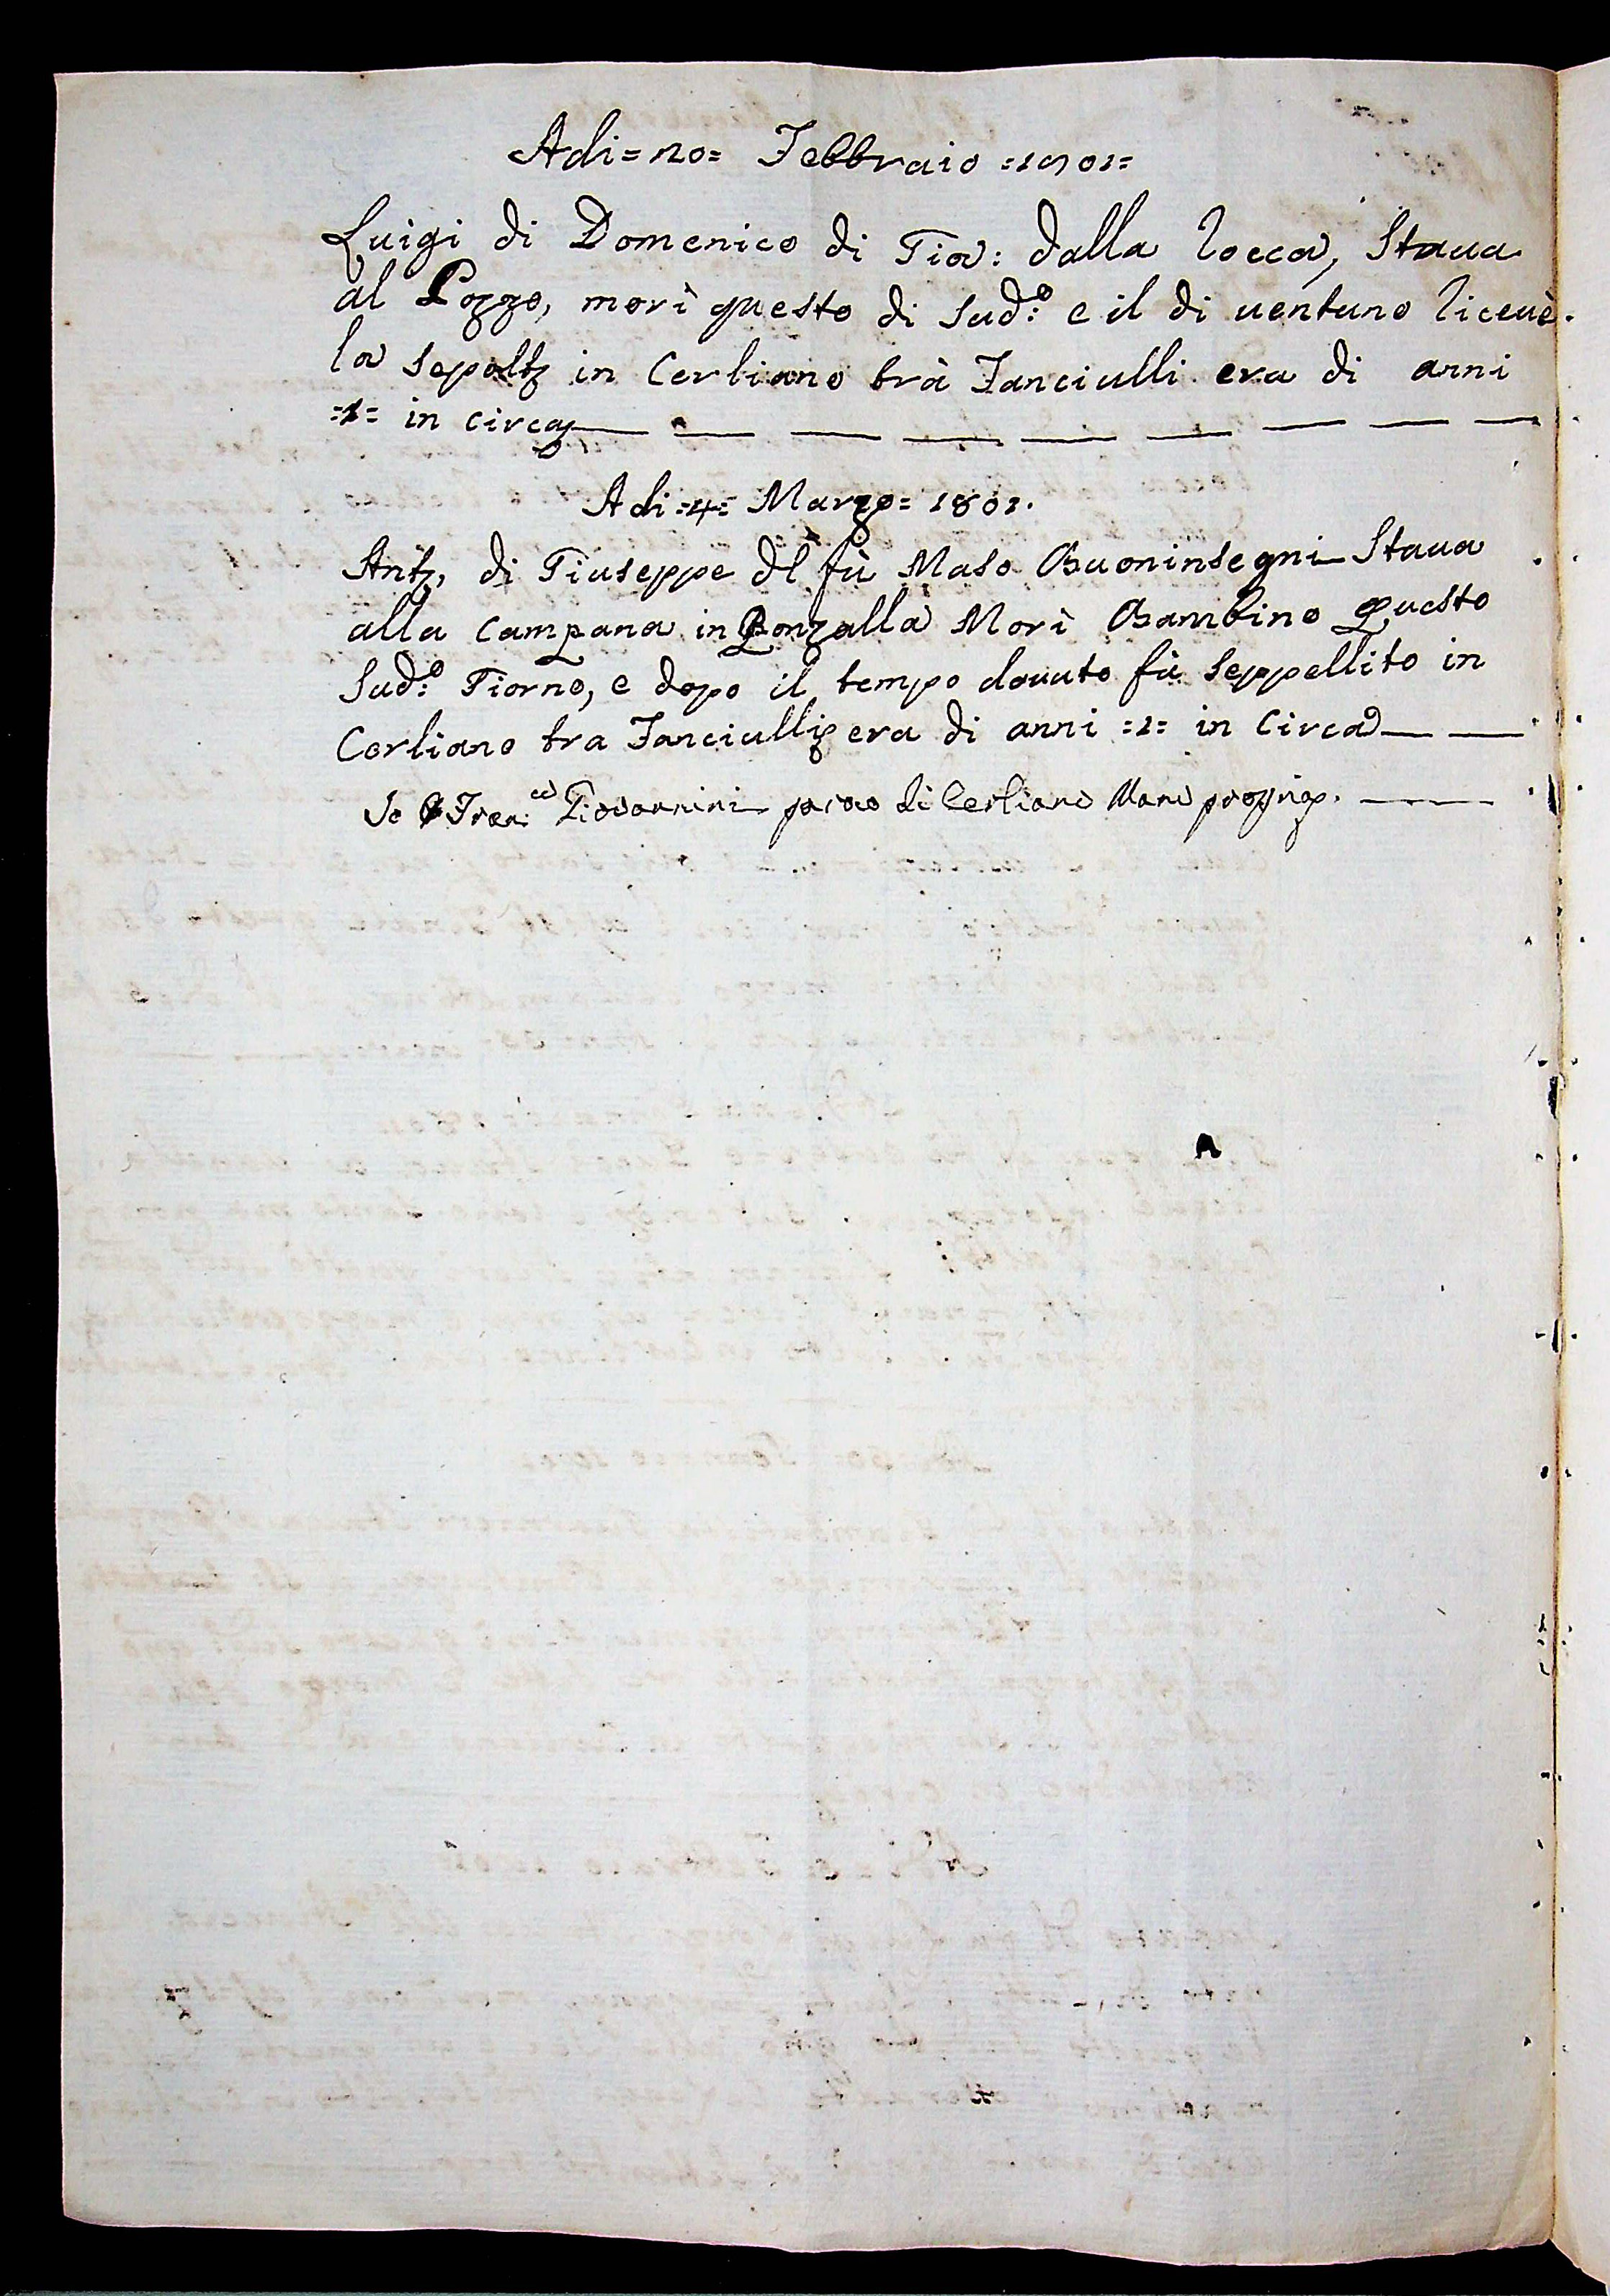 Adi = 20 = Febbraio = 1801 =
Luigi di Domenico di Gio: dalla Rocca, Stava
al Pozzo, morì questo di Sud:º e il di ventuno Ricevè
la Sepoltª in Cerliano trà Fanciulli era di anni
=1= in circa
Adi =4= Marzo = 1801.
Antº, di Giuseppe dl fù Maso Buoninsegni Stava
alla Campana in Ronzalla Morì Bambino Questo
Sud:º Giorno, e dopo il tempo dovuto fù Seppellito in
Cerliano tra Fanciulli era di anni =1= in Circa
Io Fran:co Giovannini di Cerliano Mano propria.